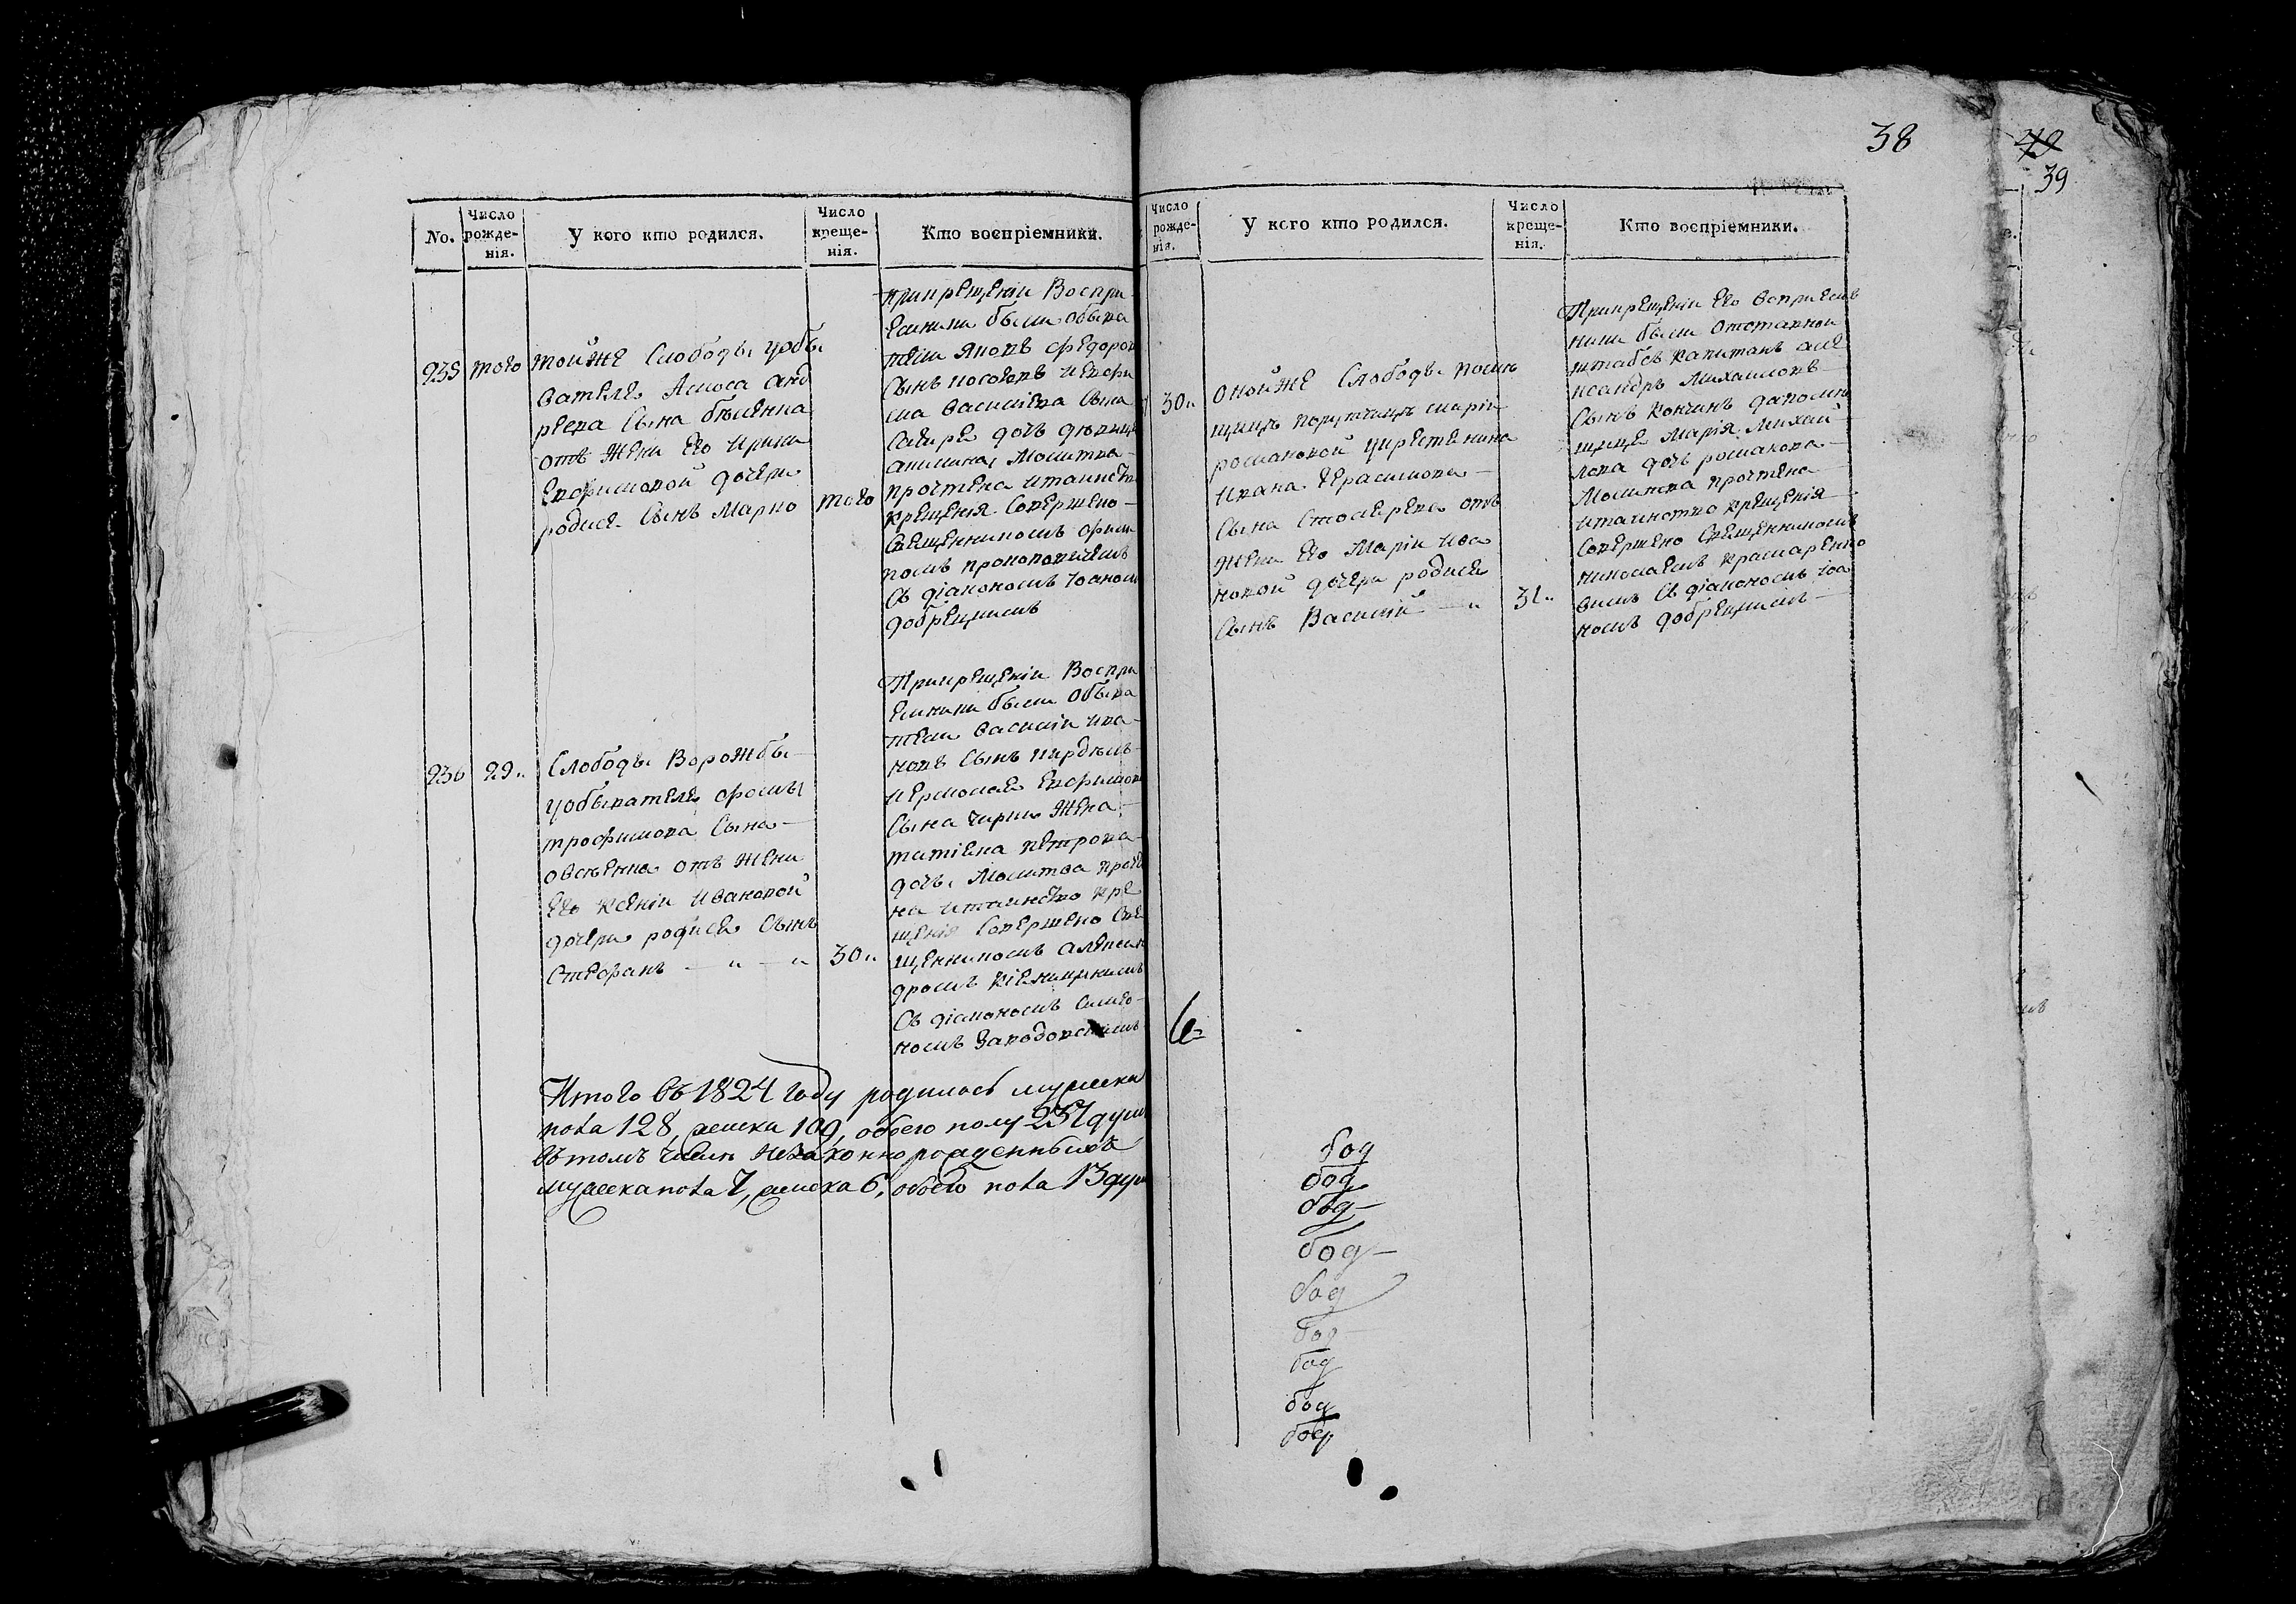 38
49
39
No.
Число рожде-нія.
У кого кто родился.
Число креще-нія.
Кто воспріемники.
235
того
тойже Слободы уобы
вателя Амоса Анд
реева Сына бѣленка
отъ жени Его Ирини
Евфимовой дочери
родися Сынъ Марко
того
При крещеніи Воспри
емники были обыва
тели Яковъ Федоровъ
Сынъ
ма Василіева Сына
дочъ девица
Молитва
прочтена итаинств
крещенія Совершено
Священникомъ Фили
помъ Прокоповичемъ
Съ діакономъ Іоаномъ
добрецкимъ
236
29
Слободы Ворожбы
уобывателя Фомы
трофимова Сына
овсѣенка отъ жени
Его Ксеніи Ивановой
дочери родися Сынъ
Стефанъ
30
При крещеніи Воспри
емники были Обыва
тели Василіи Ива
новъ Сынъ
иермолая Евфимова
Сына Жена
татіяна петрова
дочъ Молитва прочте
на итаинство кре
щенія Совершено Свя
щенникомъ Алексан
дромъ
Съ діакономъ Симео
номъ
Итого въ 1824 году родилось мужеска
пола 128, женска 109, обоего полу 237 душ
въ томъ числѣ Незаконнорожденныхъ
мужеска пола 7, женска 6, обоего пола 13 душ
Число рожде-нія.
У кого кто родился.
Число креще-нія.
Кто воспріемники.
30
Онойже Слободы поме
щицы порутчицы Маріи
романовой укрестянина
Ивана Герасимова
Сына Столерева отъ
жени Его Маріи Ива
новой дочери родися
Сынъ Василій
31
При крещеніи Его восприем
ники были Отставной
штабсъ капитанъ Але
ксандръ Михаиловъ
Сынъ
щица Марія Михай
лова дочъ романова
Молитва прочтена
итаинство крещенія
Совершено Священникомъ
николаемъ крамаренко
вимъ Съ діакономъ Іоа
номъ добрецкимъ